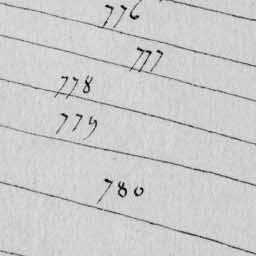 776
777
778
779
780